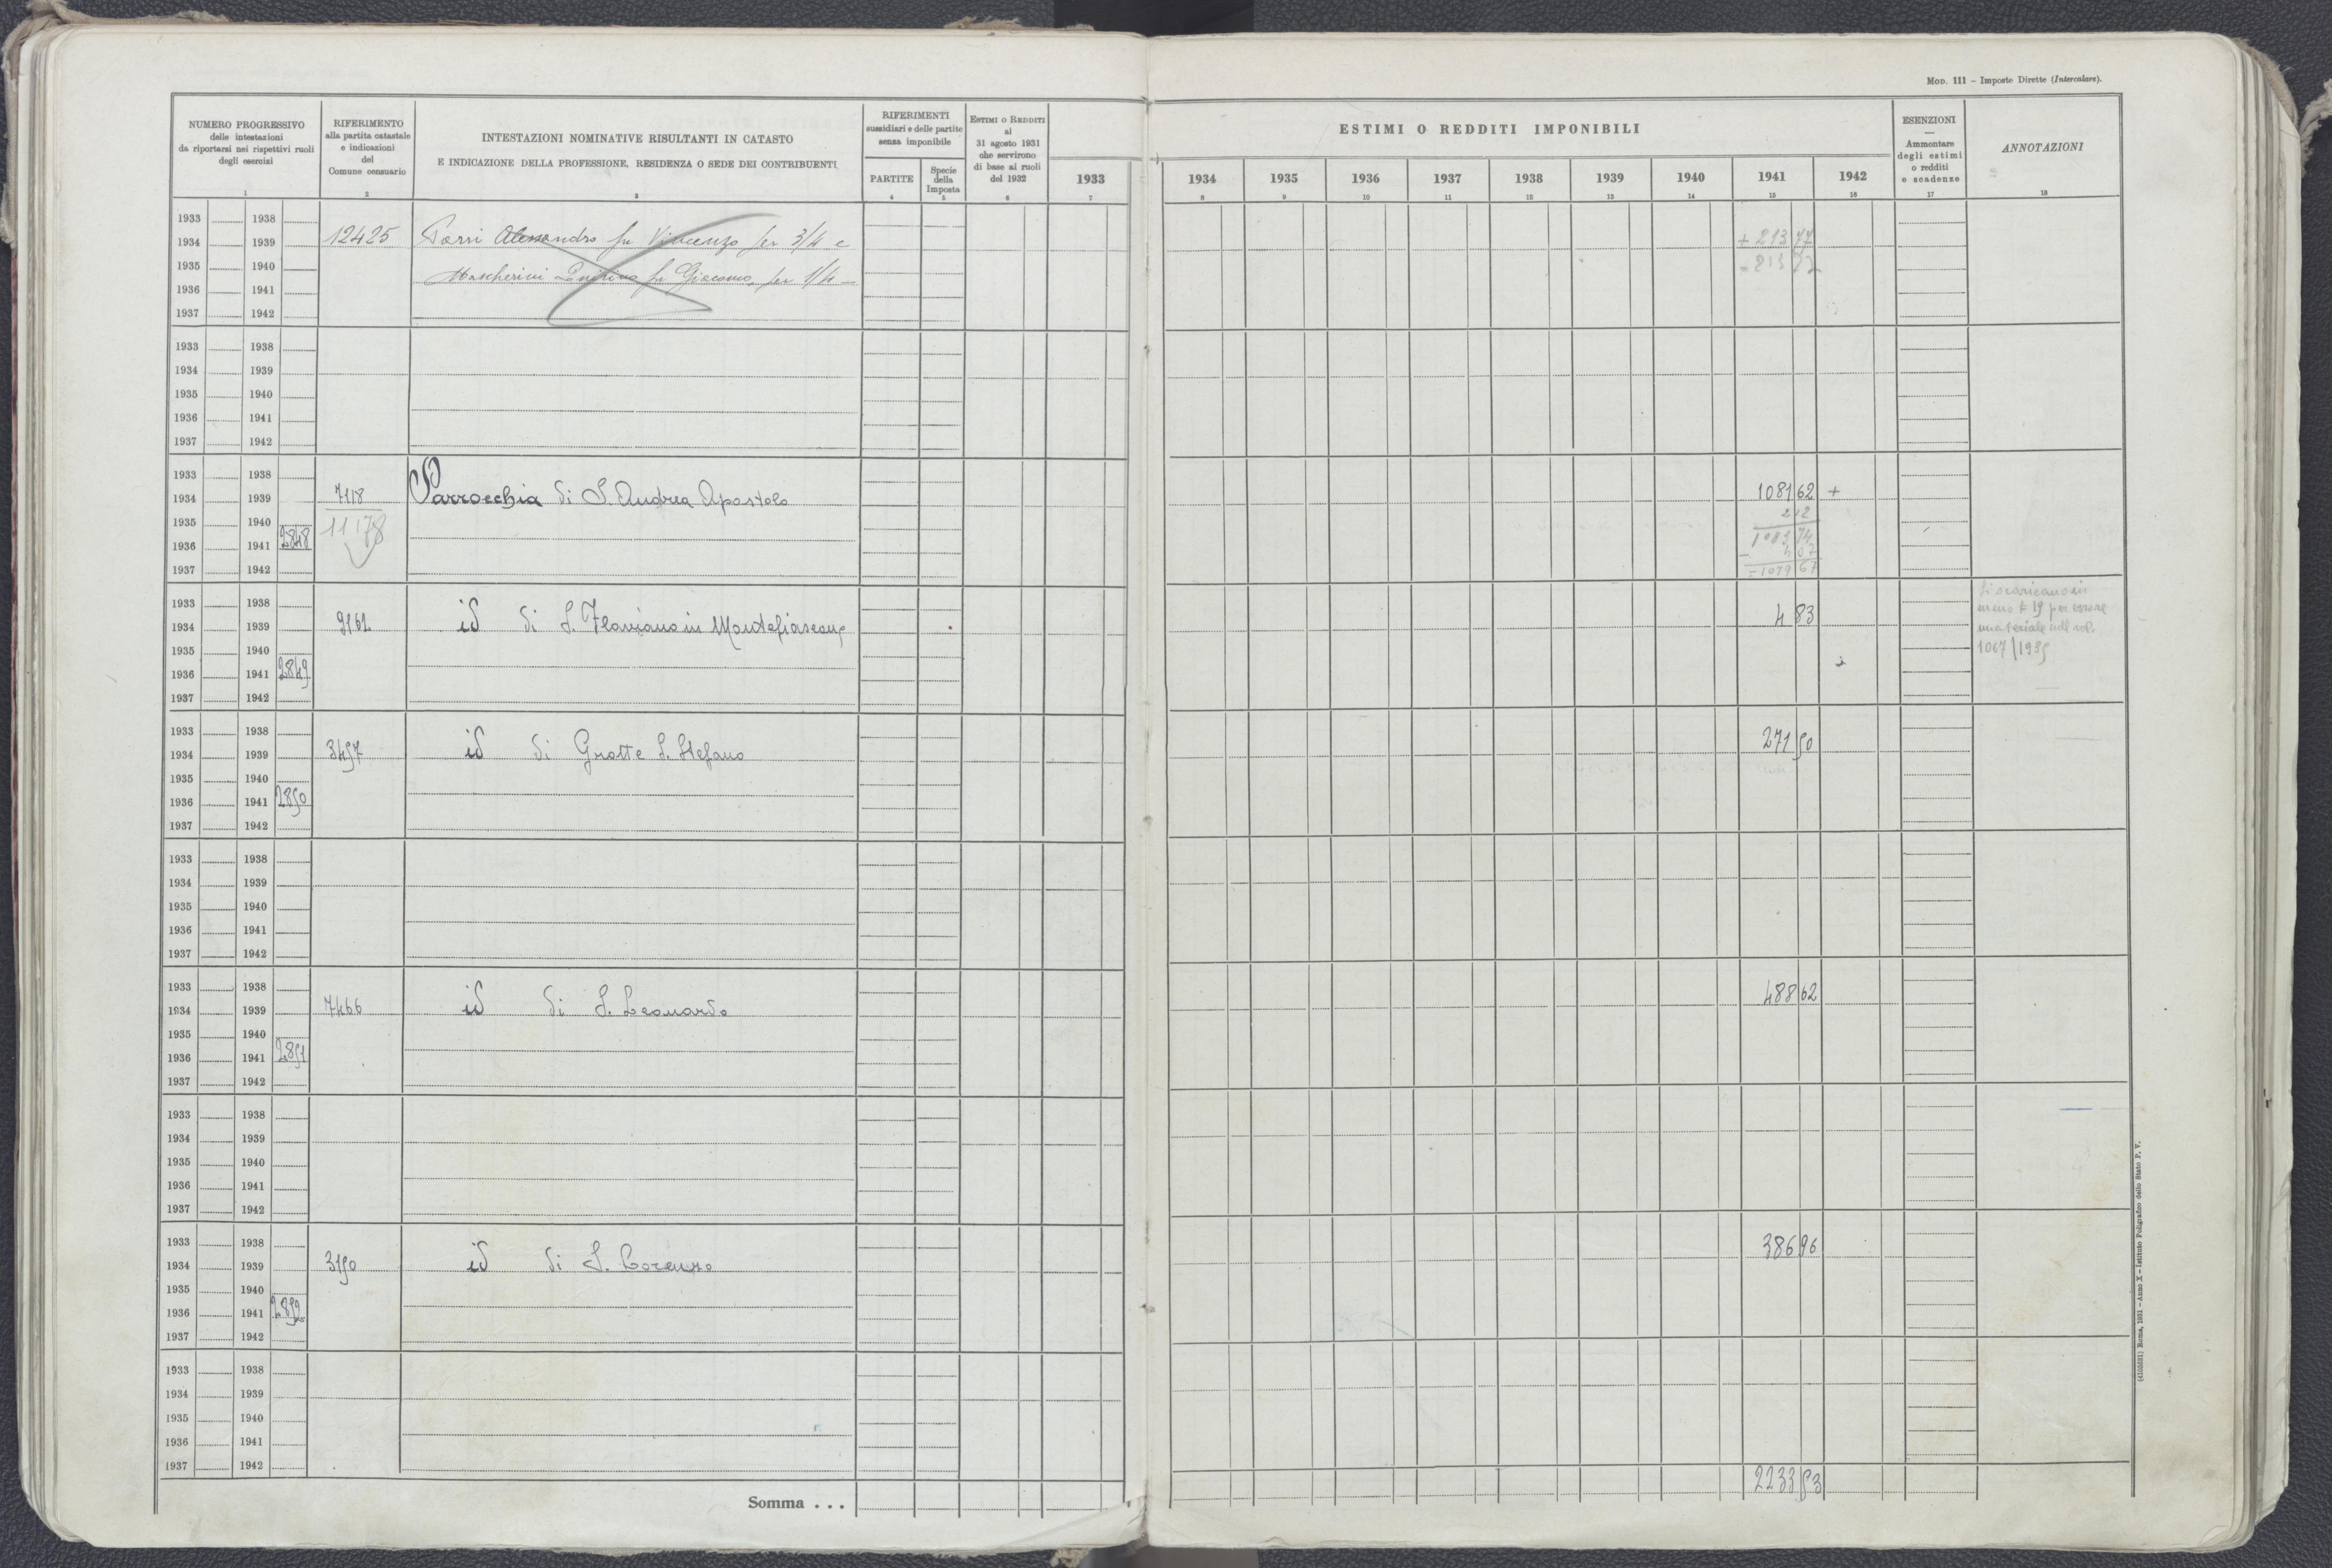 MOD. 111 – Imposte Dirette (Intercalare).
NUMERO PROGRESSIVO
delle intestazioni
da riportarsi nei rispettivi ruoli
degli esercizi
1
RIFERIMENTO
alla partita catastale
e indicazioni
del
Comune censuario
2
INTESTAZIONI NOMINATIVE RISULTANTI IN CATASTO
E INDICAZIONE DELLA PROFESSIONE, RESIDENZA O SEDE DEI CONTRIBUENTI
3
RIFERIMENTI
sussidiari e delle partite
senza imponibile
PARTITE
4
Specie
della
Imposta
5
ESTIMI O REDDITI
al
31 agosto 1931
che servirono
di base ai ruoli
del 1932
6
ESTIMI O REDDITI IMPONIBILI
1933 1934 1935 1936 1937 1938 1939 1940 1941 1942
7 8 9 10 11 12 13 14 15 16
ESENZIONI
—
Ammontare
degli estimi
o redditi
e scadenze
17
ANNOTAZIONI
18
1933 1938
1934 1939 12425 Porri Alessandro fu Vincenzo per 3/4 e + 213 77
1935 1940 Mascherini Quirino fu Giacomo, per 1/4 – - 213 77
1936 1941
1937 1942
1933 1938
1934 1939
1935 1940
1936 1941
1937 1942
1933 1938
1934 1939 7118 Parrocchia di S. Andrea Apostolo 1081 62 +
1935 1940 11178 2 12
1936 1941 2848 1083 74
- 4 07
1937 1942 = 1079 67
1933 1938
1934 1939 9162 id di S. Flaviano in Montefiascone 4 83
1935 1940
1936 1941 2849
1937 1942
Si scaricano in
meno £ 19 per essere
materiale nell vol.
1067/1939
1933 1938
1934 1939 3457 id di Grotte S. Stefano 271 50
1935 1940
1936 1941 2850
1937 1942
1933 1938
1934 1939
1935 1940
1936 1941
1937 1942
1933 1938
1934 1939 7466 id di S. Leonardo 488 62
1935 1940
1936 1941 2851
1937 1942
1933 1938
1934 1939
1935 1940
1936 1941
1937 1942
1933 1938
1934 1939 3150 id di S. Lorenzo 386 96
1935 1940
1936 1941 2852
1937 1942
1933 1938
1934 1939
1935 1940
1936 1941
1937 1942
Somma . . . 2233 53
Roma, 1931 – Anno X – Istituto Poligrafico dello Stato P. V.